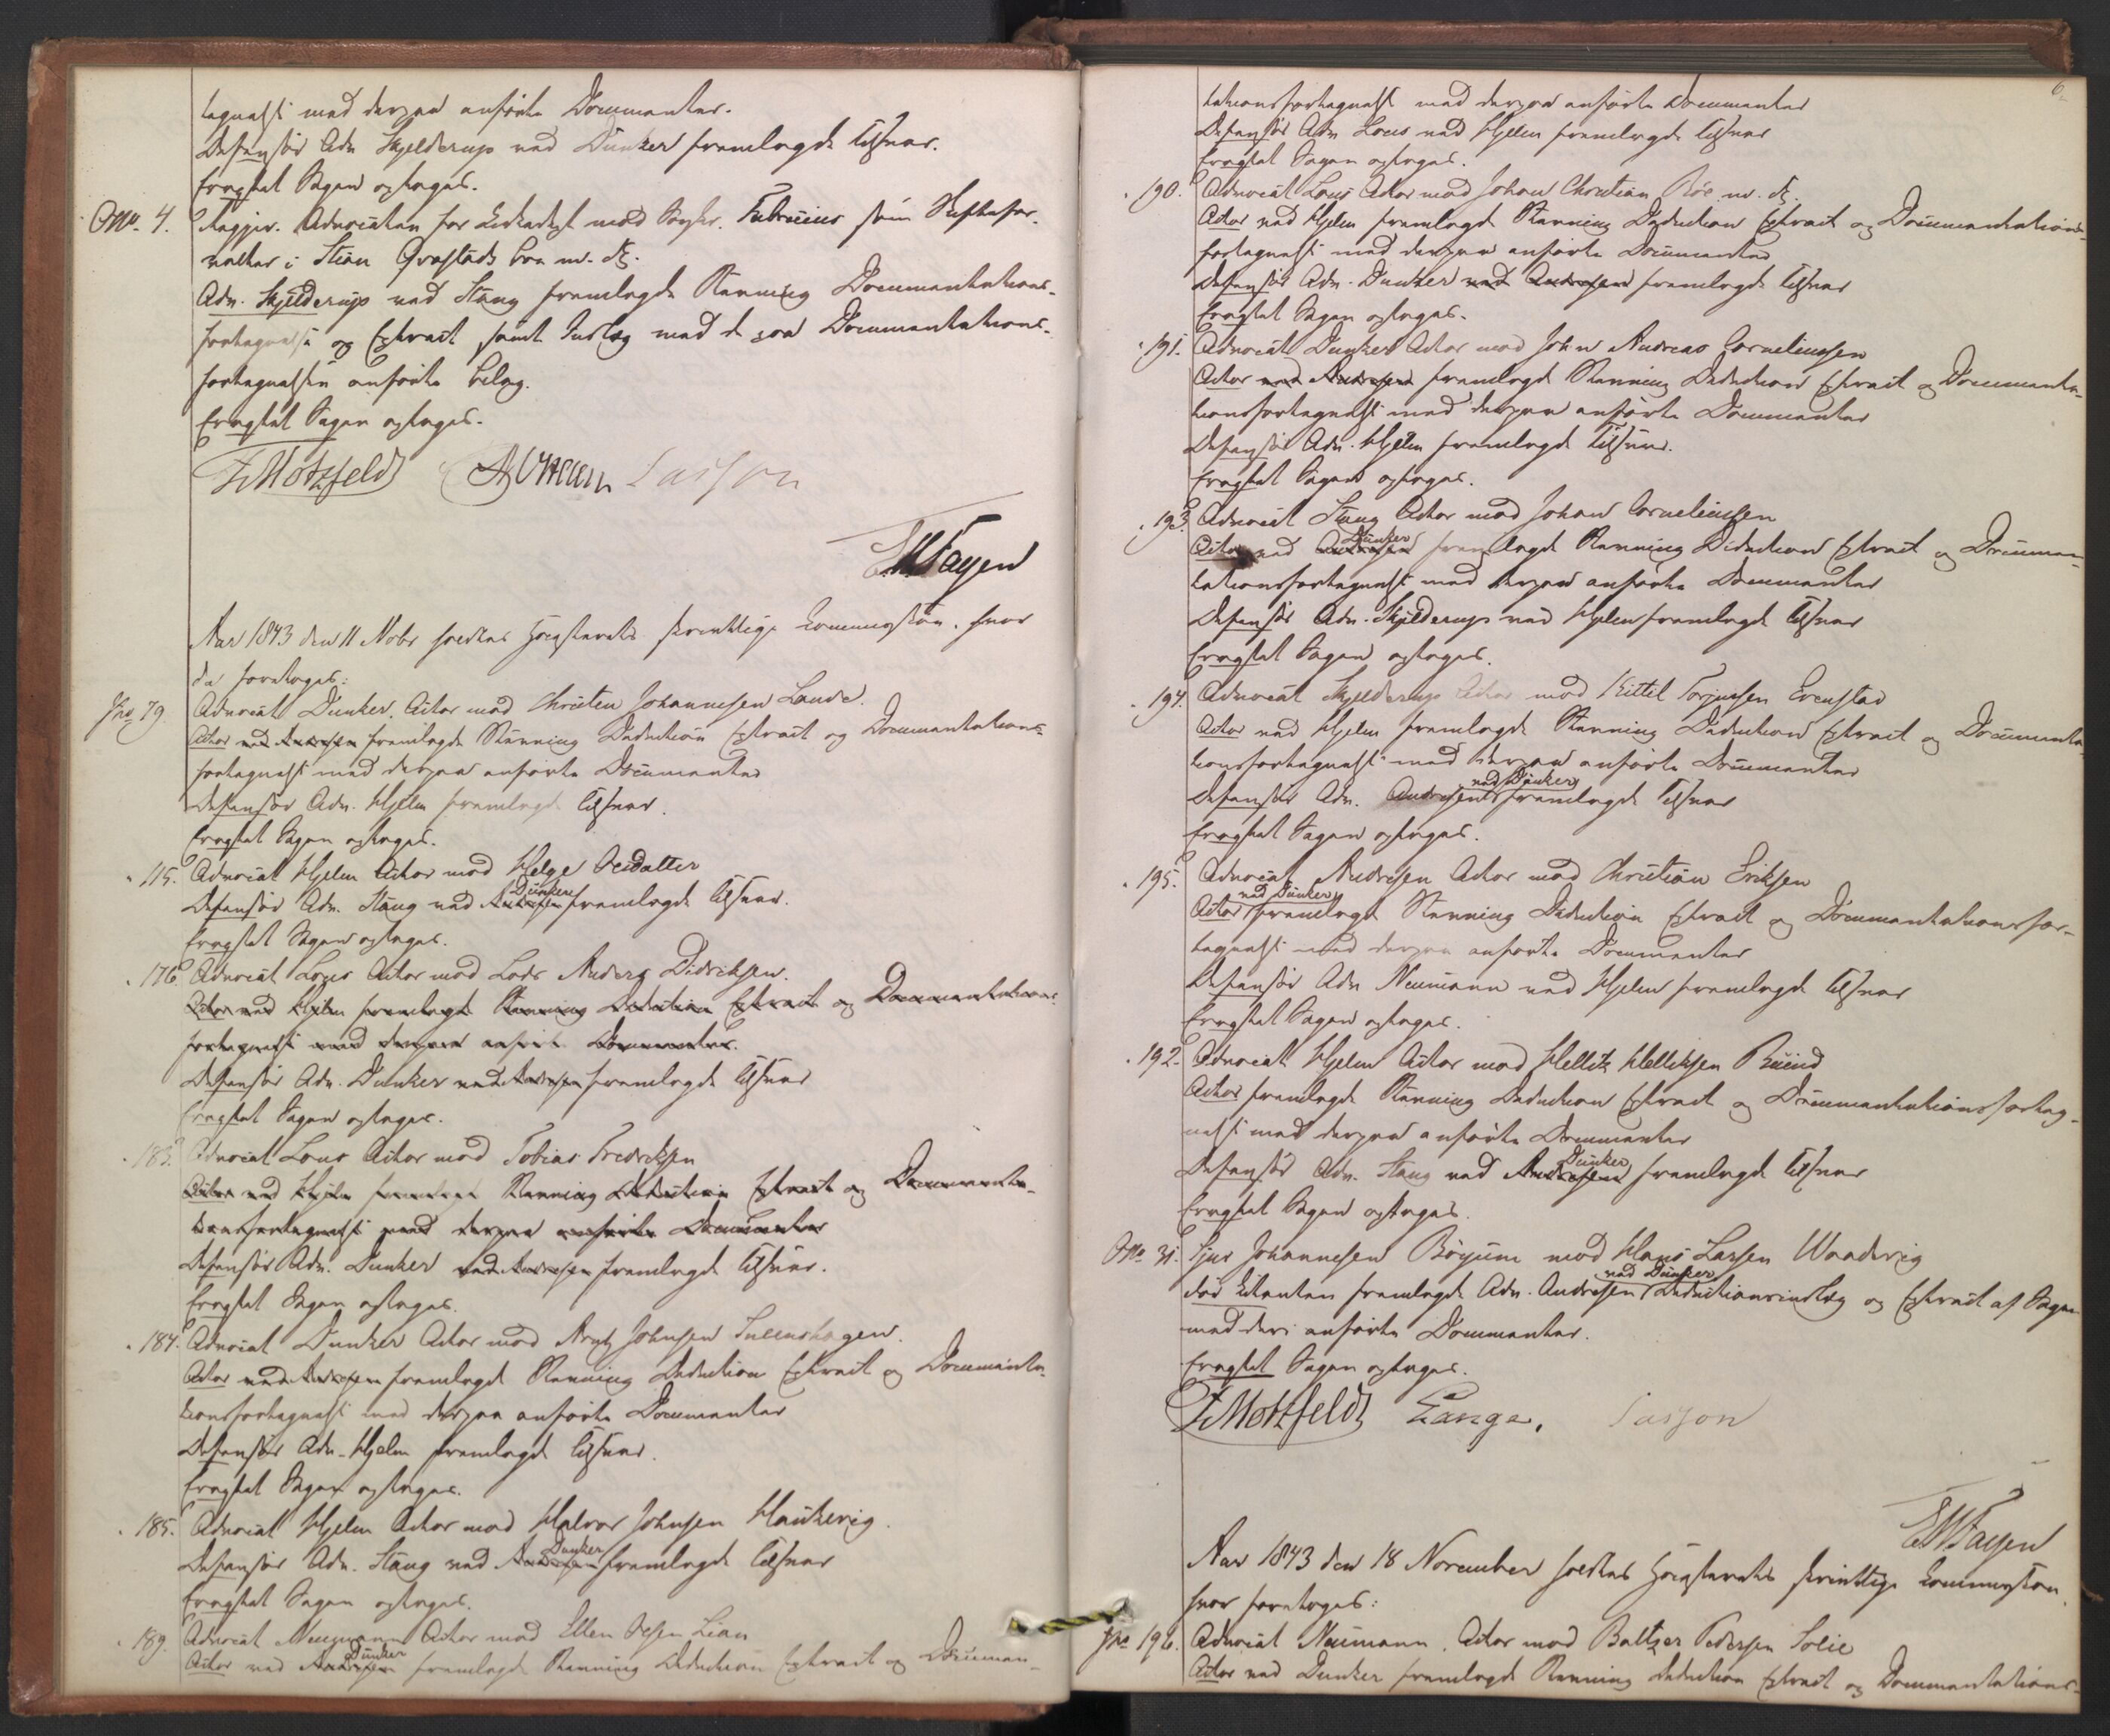 tegnelse med derpaa anførte Documenter.
Defensor Adv. Hjelderup ved Dunker fremlagde Tilsvar.
Eragtet Sagen optages.
No. 4. Regjer. Advocaten for mod Fabricius som Skiftefor-
valter i Stian Græstads Boe m. fl.
Adv. Hjelderup ved Stang fremlagde Stævning Documentations-
fortegnelse og Extract samt Indlæg med de paa Documentations-
fortegnelsen anførte Bilag.
Eragtet Sagen optages.
K. Motzfeldt Lasson
Fayen
Aar 1843 den 11 Novbr holdtes Høiesterets skriftlige Commission, hvor
da foretoges:
No. 79. Advocat Dunker. Actor mod Christen Johannesen Lande.
Actor ved Andresen fremlagde Stævning Deduction Extract og Documentations-
fortegnelse med derpaa anførte Documenter
Defensor Adv. Hjelm fremlagde Tilsvar.
Eragtet Sagen optages.
" 115. Advocat Hjelm Actor mod Helge Datter
Dunker
Defensor Adv. Stang ved Andresen fremlagde Tilsvar.
Eragtet Sagen optages.
" 176. Advocat Lous Actor mod Lods Anders Didriksen.
Actor ved Hjelm fremlagde Stævning Deduction Extract og Documentations-
fortegnelse med derpaa anførte Documenter.
Defensor Adv. Dunker ved Andresen fremlagde Tilsvar
Eragtet Sagen optages.
" 183. Advocat Lous Actor mod Tobias Fredriksen
Actor ved Hjelm fremlagde Stævning Deduction Extract og Documenta-
tionsfortegnelse med derpaa anførte Documenter
Defensor Adv. Dunker ved Andresen fremlagde Tilsvar.
Eragtet Sagen optages.
" 184. Advocat Dunker Actor mod Arnt Johnsen
Actor ved Andresen fremlagde Stævning Deduction Extract og Documenta-
tionsfortegnelse med derpaa anførte Documenter
Defensor Adv. Hjelm fremlagde Tilsvar.
Eragtet Sagen optages.
" 185. Advocat Hjelm Actor mod Halvor Johnsen Haukevig.
Dunker
Defensor Adv. Stang ved Andresen fremlagde Tilsvar
Eragtet Sagen optages.
" 189. Advocat Neumann Actor mod Ellen Olsen Lian
Dunker
Actor ved Andresen fremlagde Stævning Deduction Extract og Documen-
6.
tationsfortegnelse med derpaa anførte Documenter
Defensor Adv. Lous ved Hjelm fremlagde Tilsvar
Eragtet Sagen optages.
" 190. Advocat Lous Actor mod Johan Christian Roe m. fl.
Actor ved Hjelm fremlagde Stævning Deduction Extract og Documentations-
fortegnelse med derpaa anførte Documenter
Defensor Adv. Dunker ved Andresen fremlagde Tilsvar
Eragtet Sagen optages.
" 191. Advocat Dunker Actor mod John Andreas Corneliussen
Actor ved Andresen fremlagde Stævning Deduction Extract og Documenta-
tionsfortegnelse med derpaa anførte Documenter
Defensor Adv. Hjelm fremlagde Tilsvar.
Eragtet Sagen optages.
" 193. Advocat Stang Actor mod Johan Corneliussen
Dunker
Actor ved Andresen fremlagde Stævning Deduction Extract og Documen-
tationsfortegnelse med derpaa anførte Documenter
Defensor Adv. Hjelderup ved Hjelm fremlagde Tilsvar
Eragtet Sagen optages.
" 194. Advocat Hjelderup Actor mod Kittil Torjussen Evenstad
Actor ved Hjelm fremlagde Stævning Deduction Extract og Documenta-
tionsfortegnelse med derpaa anførte Documenter
ved Dunker
Defensor Adv. Andresen fremlagde Tilsvar
Eragtet Sagen optages.
" 195. Advocat Andresen Actor mod Christian Eriksen
ved Dunker
Actor fremlagde Stævning Deduction Extract og Documentationsfor-
tegnelse med derpaa anførte Documenter
Defensor Adv. Neumann ved Hjelm fremlagde Tilsvar
Eragtet Sagen optages.
" 192. Advocat Hjelm Actor mod Helleksen
Actor fremlagde Stævning Deduction Extract og Documentationsforteg-
nelse med derpaa anførte Documenter
Dunker
Defensor Adv. Stang ved Andresen fremlagde Tilsvar
Eragtet Sagen optages.
No. 31. Sjur Johannesen Bøyum mod Hans Larsen
ved Dunker
For Citanten fremlagde Adv. Andresen Deductionsindlæg og Extract af Sagen
med deri anførte Documenter.
Eragtet Sagen optages.
K. Motzfeldt Lange. Lasson
Fayen
Aar 1843 den 18 November holdtes Høiesterets skriftlige Commission,
hvor foretoges:
No. 196. Advocat Neumann. Actor mod Baltzer Pedersen Solie
Actor ved Dunker fremlagde Stævning Deduction Extract og Documentations-